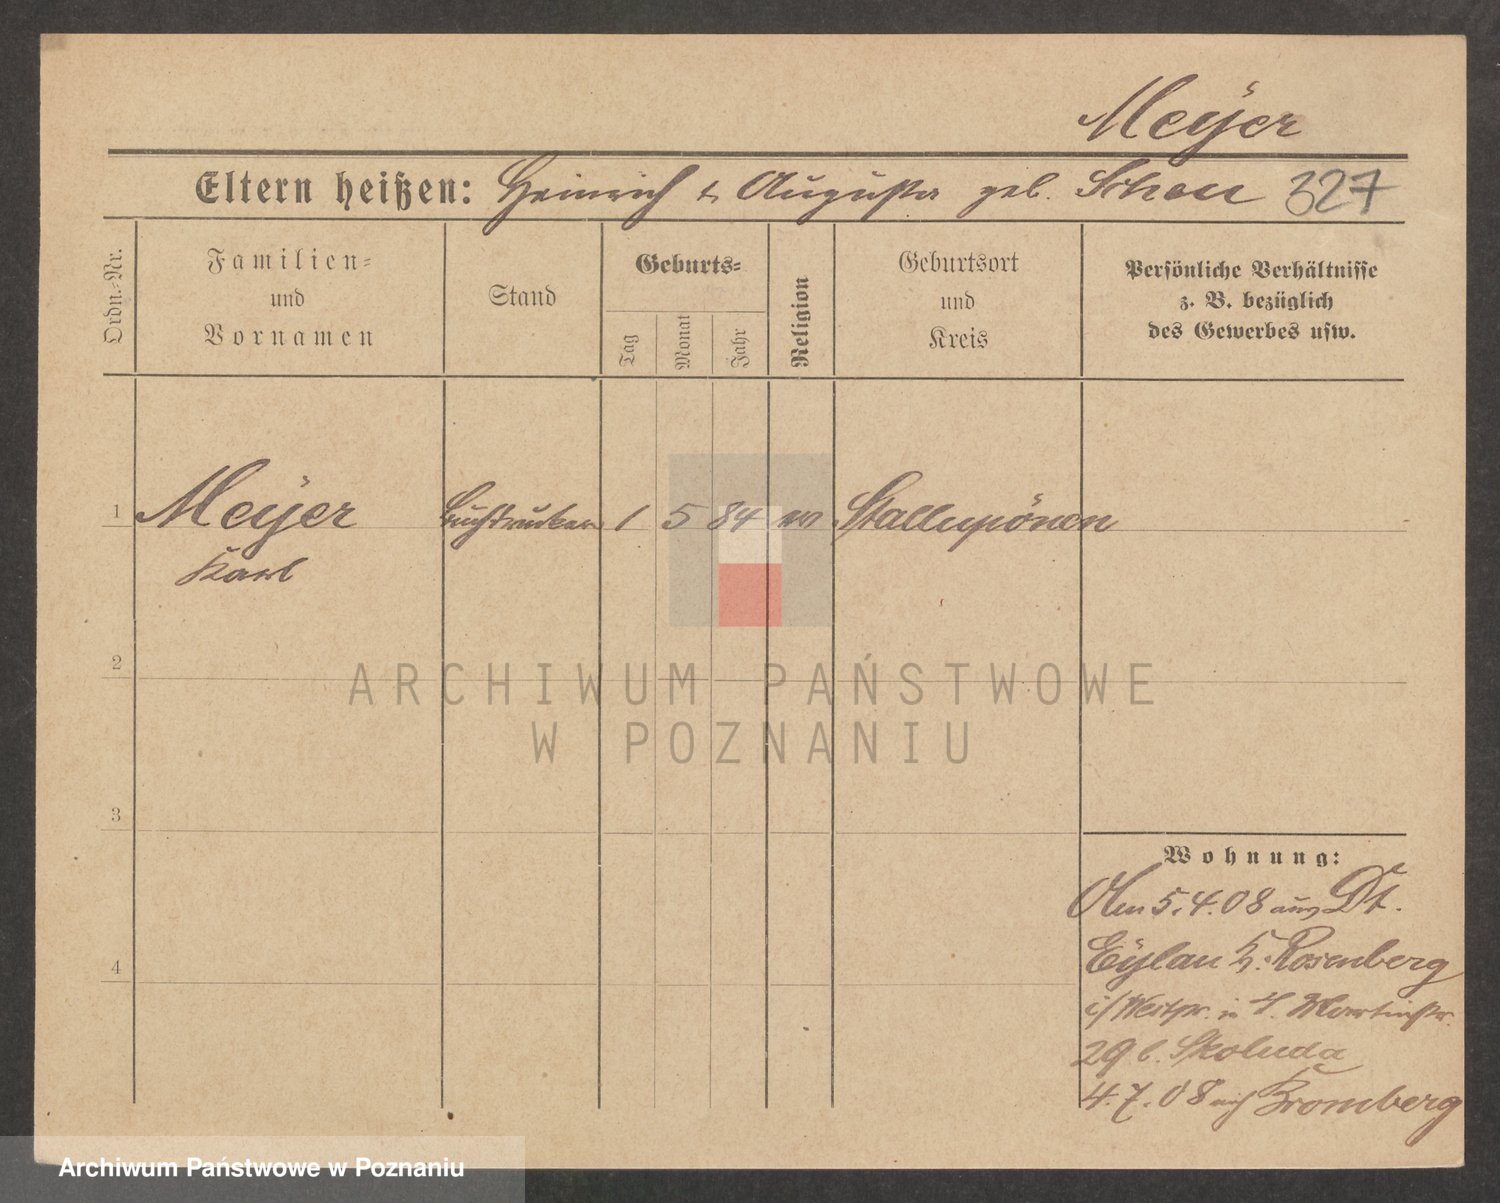 Meÿer
Eltern heißen: Heinrich u Auguste geb. Schau 327
Ordn.-Nr.
Familien-
und
Vornamen
Stand
Geburts-
Tag
Monat
Jahr
Religion
Geburtsort
und
Kreis
Persönliche Verhältnisse
z. B. bezüglich
des Gewerbes usw.
1 Meÿer Buchdrucker 1 5 84 Stallupönen
Karl
2
3
4
Wohnung:
5.4.08 aus Dt.
Eÿlau K. Rosenberg
i/Westpr. in St. Martinstr.
29 b. Skoluda
4.7.08 nach Bromberg
ARCHIWUM PAŃSTWOWE
W POZNANIU
Archiwum Państwowe w Poznaniu